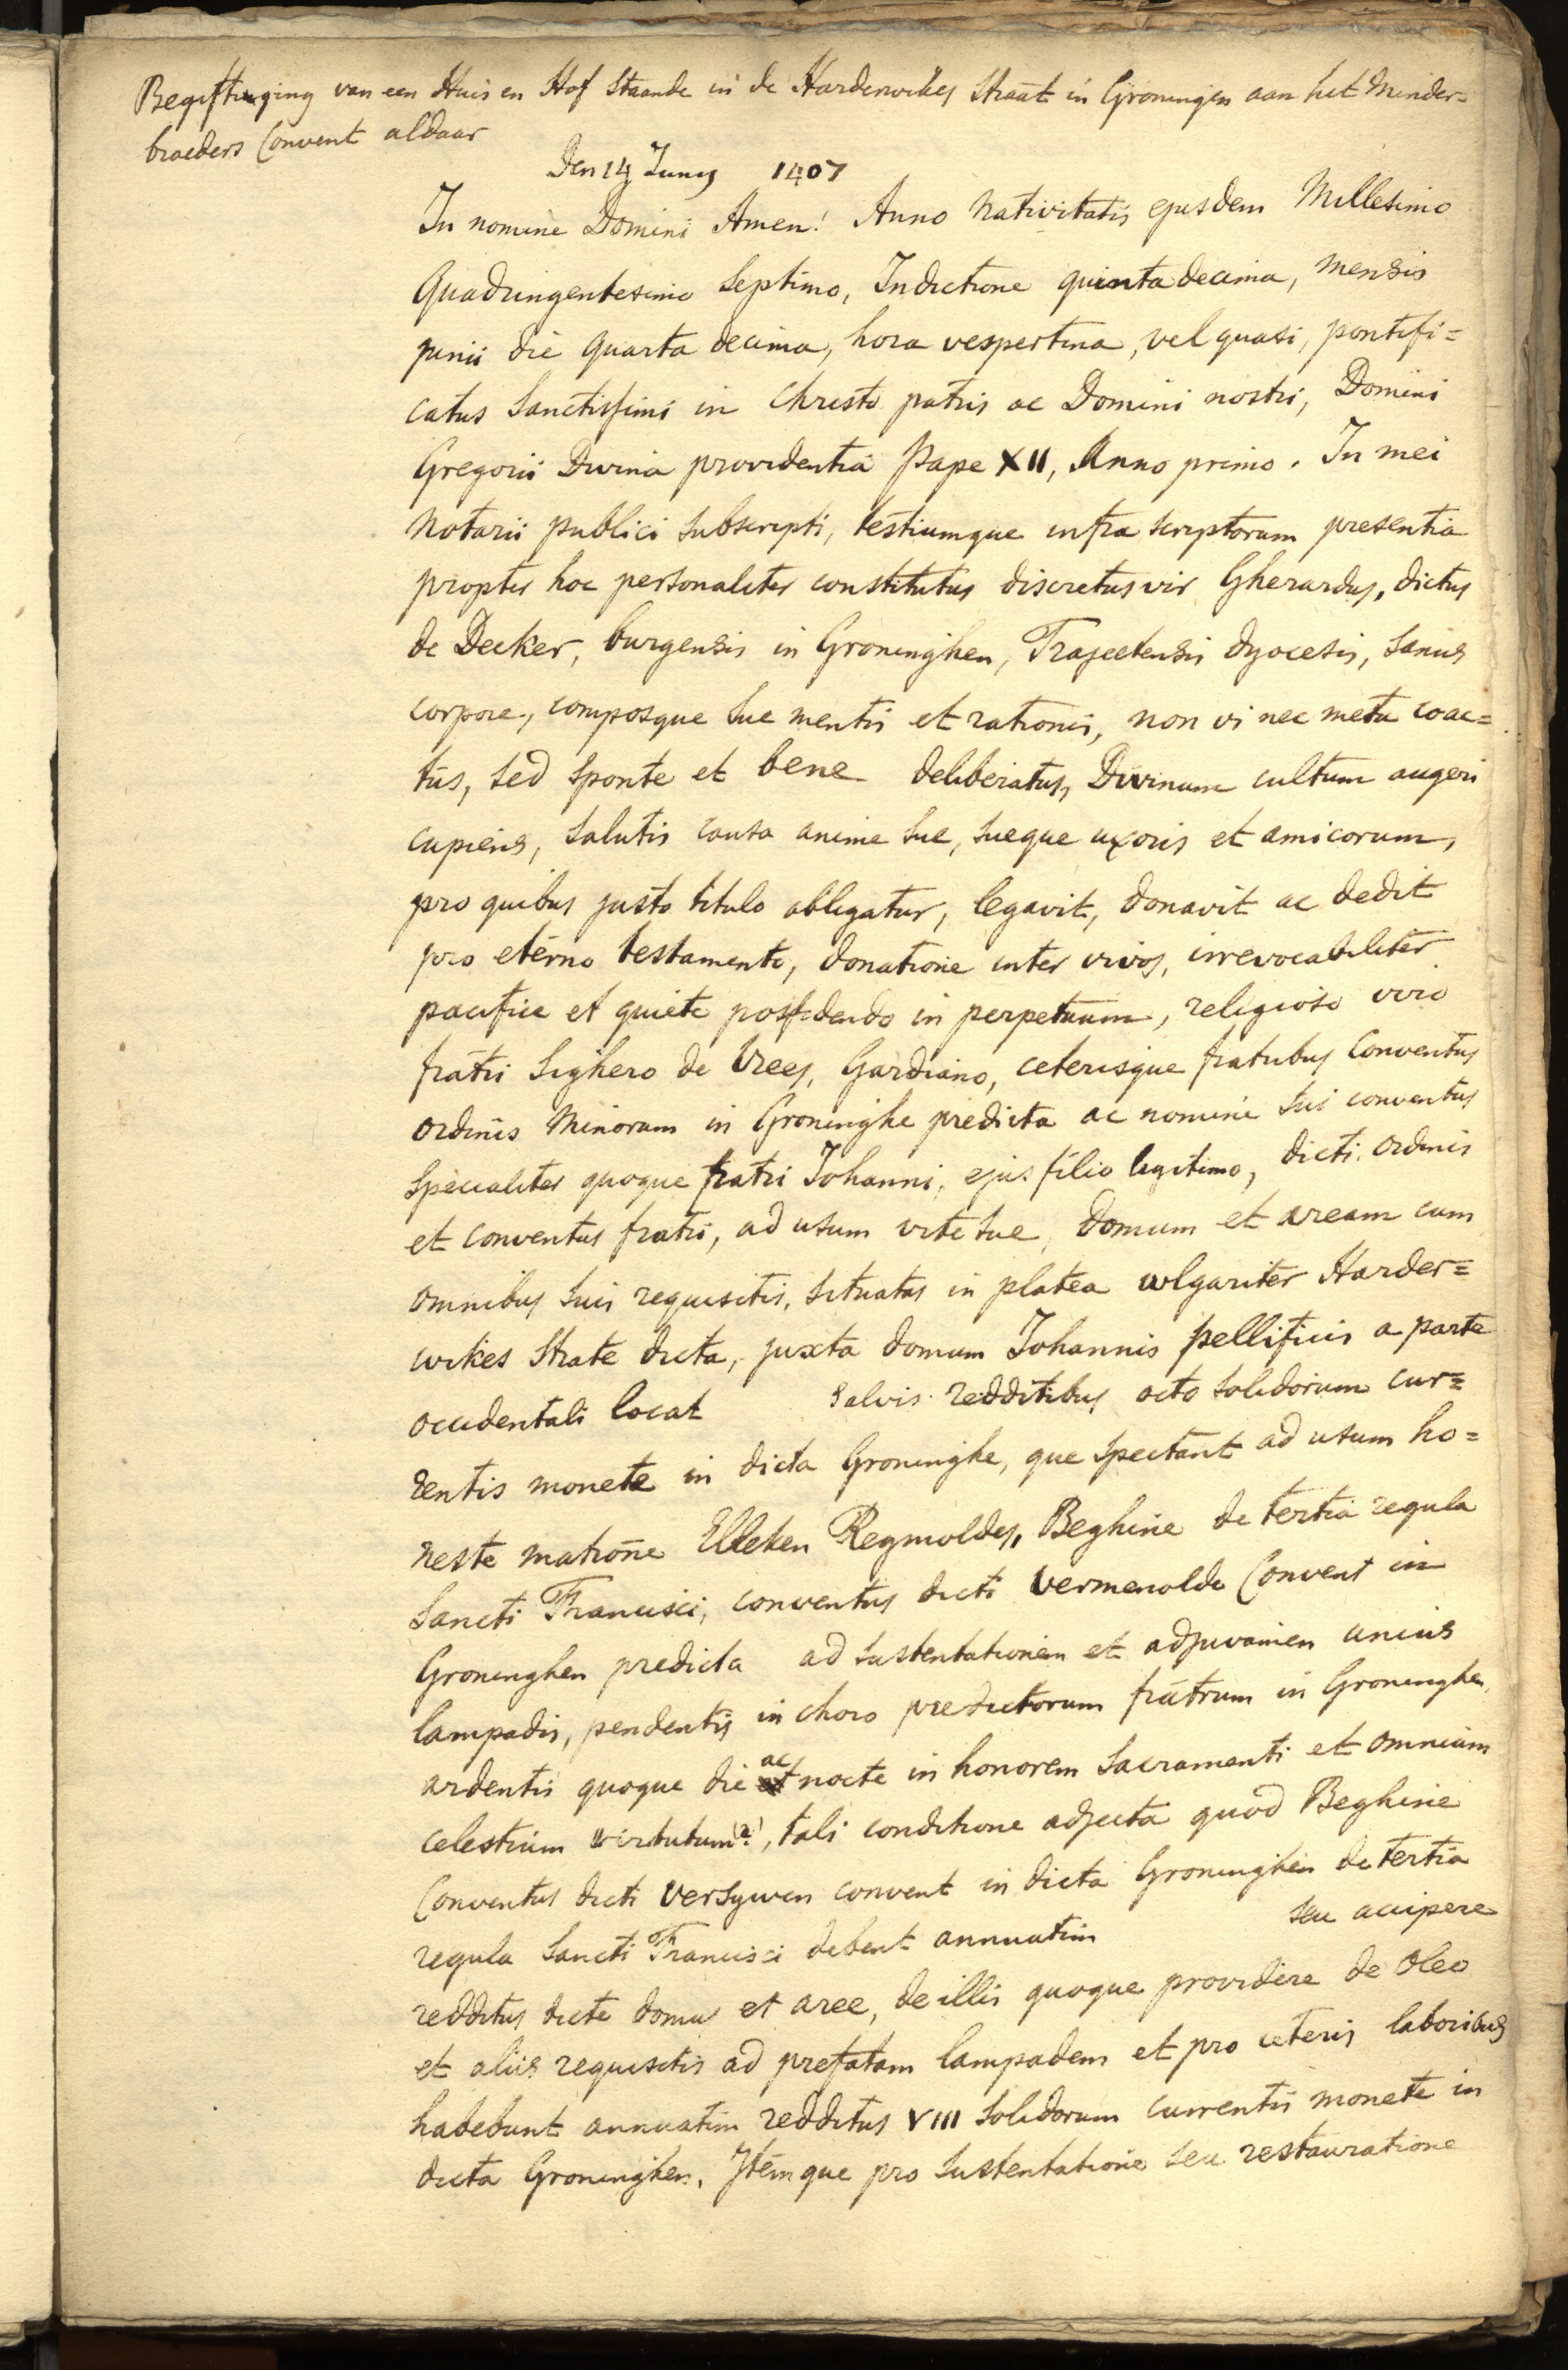 Begiftiging van een Huis en Hof staande in de Harderwikes Straat in Groningen aan het Minder=
broeders Convent aldaar
Den 14 Juny 1407
In nomine Domini Amen! Anno Nativitatis ejusdem Millesimo
Quadringentesimo Septimo, Indictione quinta decima, mensis
junii die quarta decima, hora vespertina, vel quasi, pontifi=
catus Sanctissimi in Christo patris ac Domini nostri, Domini
Gregorii Divina providentia Pape XII, Anno primo. In mei
Notarii publici subscripti, testiumque infra scriptorum presentia
propter hoc personaliter constitutus discretus vir Gherardus, dictus
de Decker, burgensis in Groninghen, Trajectensis dyocesis, sanus
corpore, composque sue mentis et rationis, non vi nec metu coac=
tus, sed sponte et bene deliberatus, Divinum cultum augeri
cupiens, salutis causa anime sue, sueque uxoris et amicorum,
pro quibus justo titulo obligatur, legavit, donavit ac dedit
pro eterno testamento, donatione inter vivos, irrevocabiliter
pacifice et quiete possidendo in perpetuum, religioso viro
fratri Sighero de Vrees, Gardiano, ceterisque fratribus Conventus
ordinis Minorum in Groninghe predicta ac nomine sui conventus
specialiter quoque fratri Johanni, ejus filio legitimo, dicti ordinis
et conventus fratri, ad usum vite sue, domum et aream cum
omnibus suis requisitis, situatas in platea wlgariter Harder=
wikes Strate dicta, juxta domum Johannis pellificis a parte
occidentali locat salvis redditibus octo solidorum cur=
rentis monete in dicta Groninghe, que spectant ad usum ho=
neste matrone Elleken Reymoldes, Beghine de tertia regula
Sancti Francisci, conventus dicti Vermenolde Convent in
Groninghen predicta ad sustentationem et adjuvamen unius
lampadis, pendentis in choro predictorum fratrum in Groninghen,
ardentis quoque die ac nocte in honorem Sacramenti et omnium
celestium virtutum (a), tali conditione adjecta quod Beghine
Conventus dicti Versywen convent in dicta Groninghen de tertia
regula Sancti Francisci debent annuatim seu accipere
redditus dicte domus et aree, de illis quoque providere de oleo
et aliis requisitis ad prefatam lampadem et pro ceteris laboribus
habebunt annuatim redditus VIII solidorum currentis monete in
dicta Groninghen. Itemque pro sustentatione seu restauratione